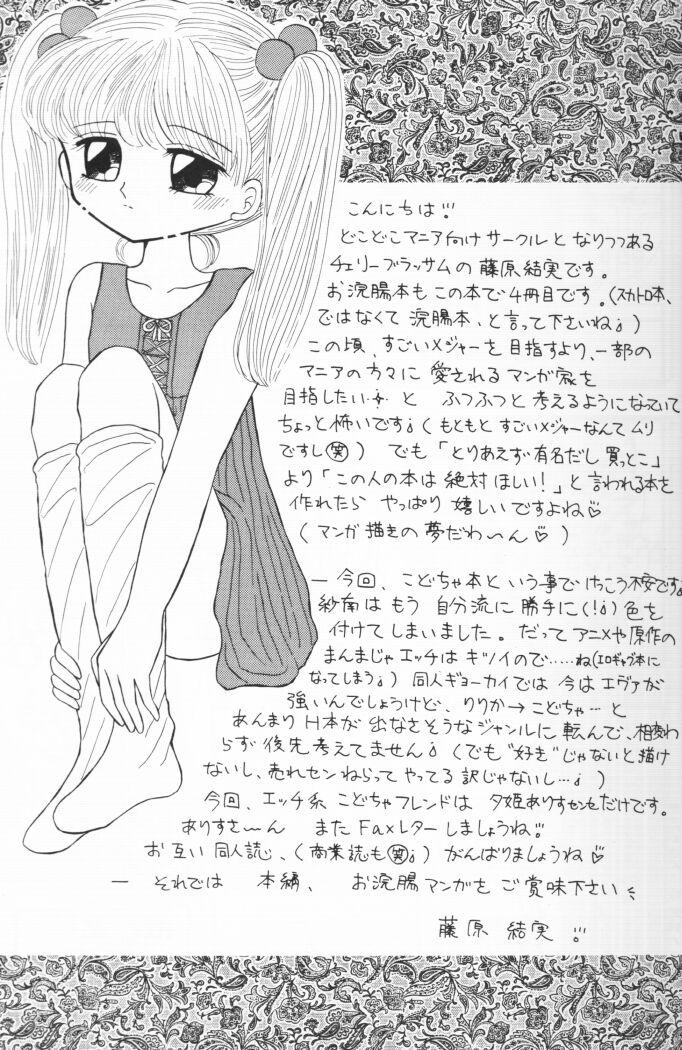 こんにちは!!
どこどこマニア向けサークルとなりつつある
チェリーブラッサムの藤原結実です。
お浣腸本もこの本で4冊目です。(スカトロ本、
ではなくて 浣腸本、と言って下さいね;)
この頃、すごいメジャーを目指すより、一部の
マニアの方々に 愛されるマンガ家を
目指したい… と ふつふつと考えるようになっていて
ちょっと怖いです;(もともと すごいメジャーなんてムリ
ですし(笑)) でも「とりあえず有名だし買っとこ」
より「この人の本は絶対ほしい!」と言われる本を
作れたら やっぱり 嬉しいですよね♡
(マンガ描きの夢だわ〜ん♡)
— 今回、こどちゃ本という事でけっこう不安です。
紗南はもう 自分流に勝手に(!;)色を
付けてしまいました。だってアニメや原作の
まんまじゃエッチはキツイので……ね(エロギャグ本に
なってしまう;) 同人ギョーカイでは 今はエヴァが
強いんでしょうけど、りりか→こどちゃ…と
あんまりH本が出なさそうなジャンルに転んで、相変わ
らず後先考えてません;(でも"好き"じゃないと描け
ないし、売れセンねらってやってる訳じゃないし…;)
今回、エッチ系 こどちゃフレンドは 夕姫ありすセンセだけです。
ありすさ〜ん またFaxレターしましょうね!!
お互い同人誌、(商業誌も(笑);) がんばりましょうね♡
— それでは 本編、 お浣腸マンガをご賞味下さい
藤原 結実 !!